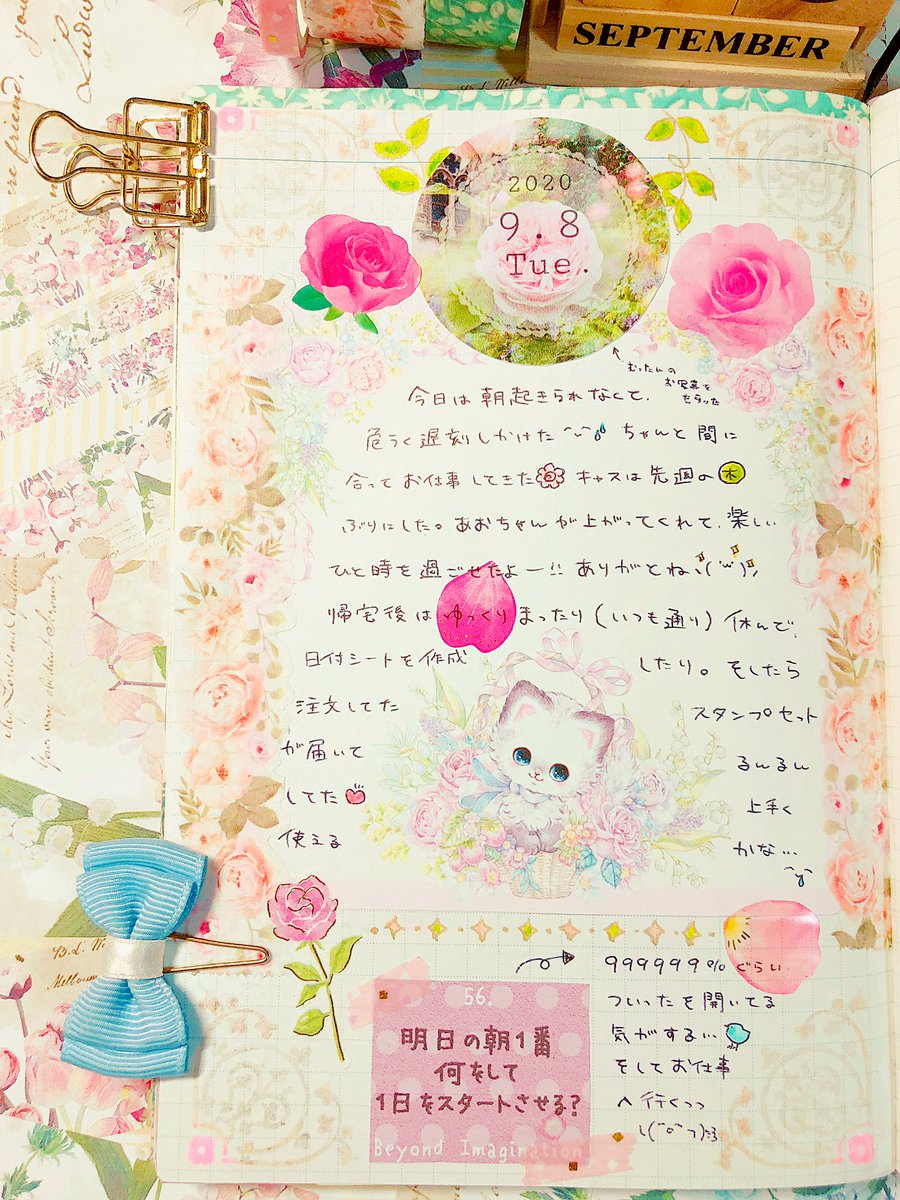 SEPTEMBER
2020
9.8
Tue.
むったんの
お写真を
もらった
今日は朝起きられなくて、
危うく遅刻しかけた ちゃんと間に
合ってお仕事してきた キャスは先週の木
ぶりにした。あおちゃんが上がってくれて、楽しい
ひと時を過ごせたよー!! ありがとね
帰宅後はゆっくりまったり(いつも通り)休んで、
日付シートを作成 したり。そしたら
注文してた スタンプセット
が届いて るんるん
してた 上手く
使える かな…
999999%ぐらい
ついったを開いてる
気がする…
そしてお仕事
へ行くっっ
56.
明日の朝1番
何をして
1日をスタートさせる?
Beyond Imagination